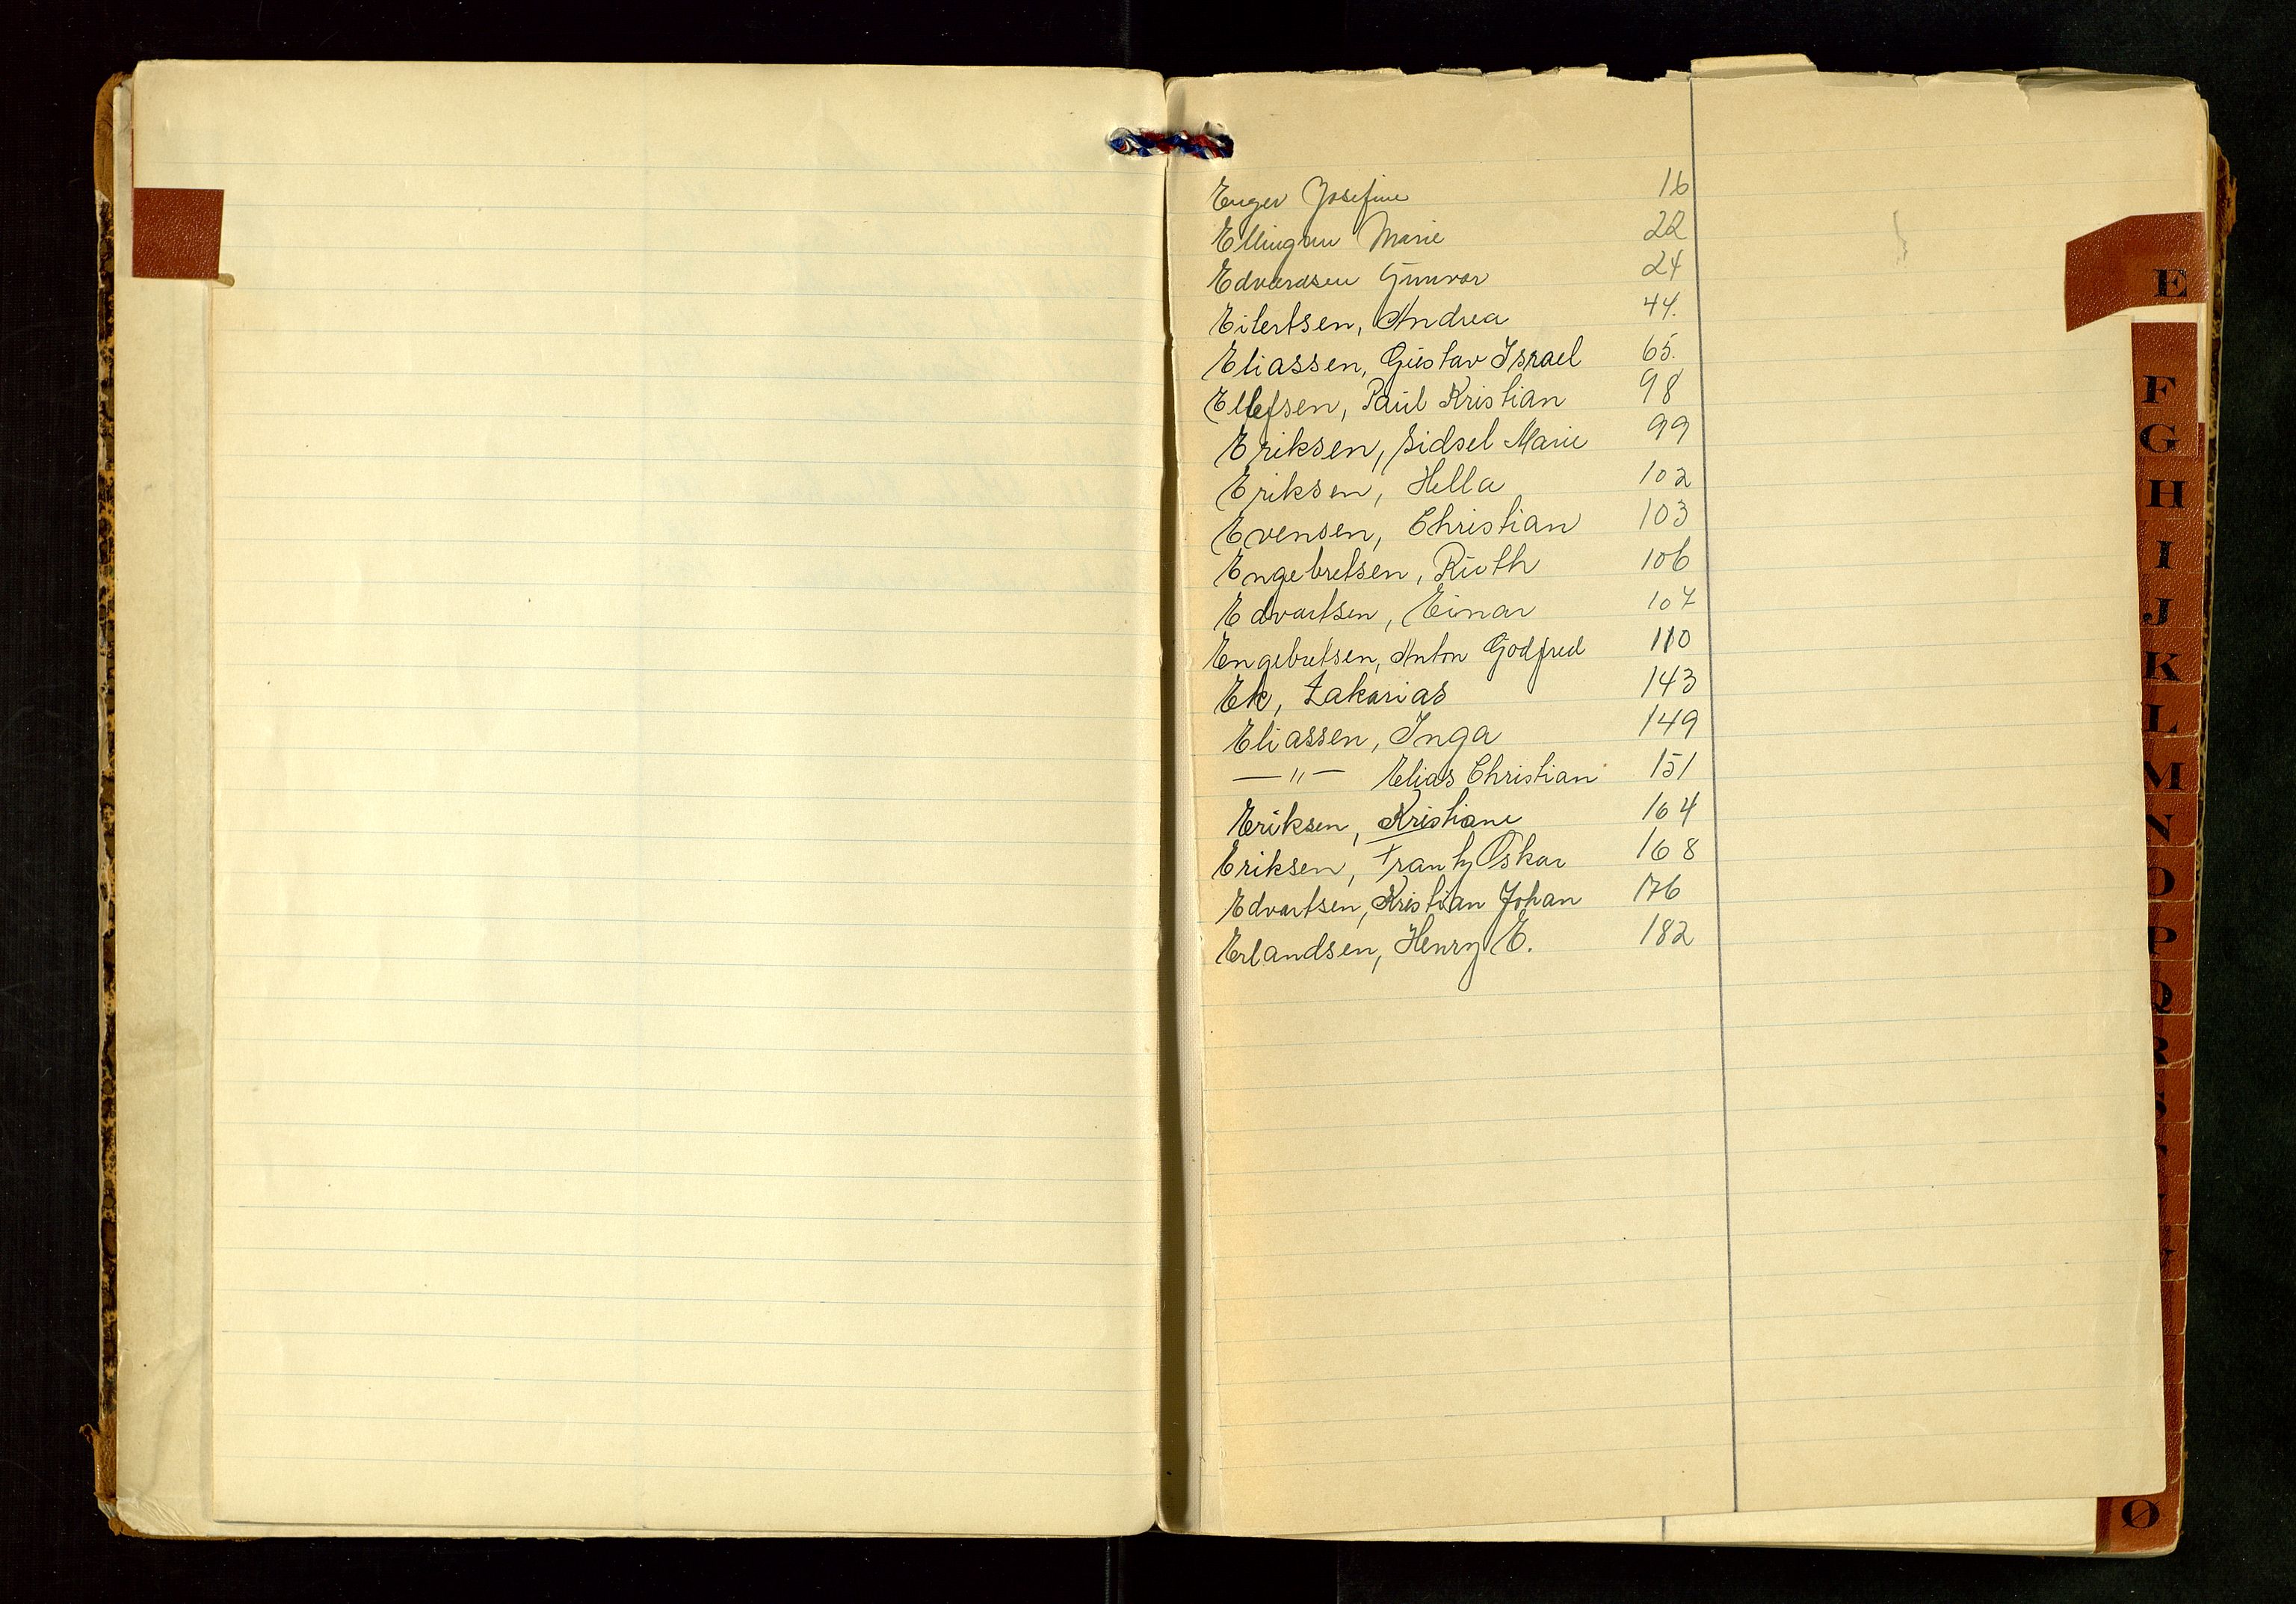 Enger Josefine 16
Ellingsen Marie 22
Edvardsen Gunvor 24
Eilertsen, Andrea 44.
Eliassen, Gustav Israel 65.
Ellefsen, Paul Kristian 98
Eriksen, Sidsel Marie 99
Eriksen, Hella 102
Evensen, Christian 103
Engebretsen, Ruth 106
Edvartsen, Einar 107
Engebretsen, Anton Godfred 110
Ek, Zakarias 143
Eliassen, Inga 149
— " — Elias Christian 151
Eriksen, Kristiane 164
Eriksen, Frantz Oskar 168
Edvartsen, Kristian Johan 176
Erlandsen, Henry E. 182
E
F
G
H
I
J
K
L
M
N
O
P
Q
R
S
Ø